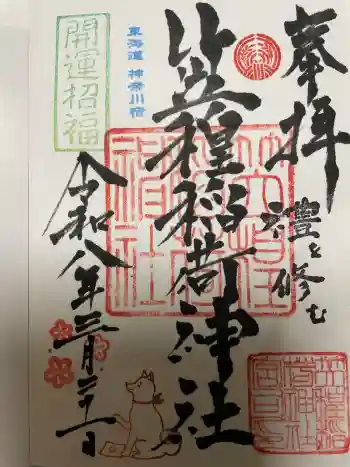 奉拝
禮を修む
笠䅣稲荷神社
東海道 神奈川宿
開運招福
令和八年三月二十一日